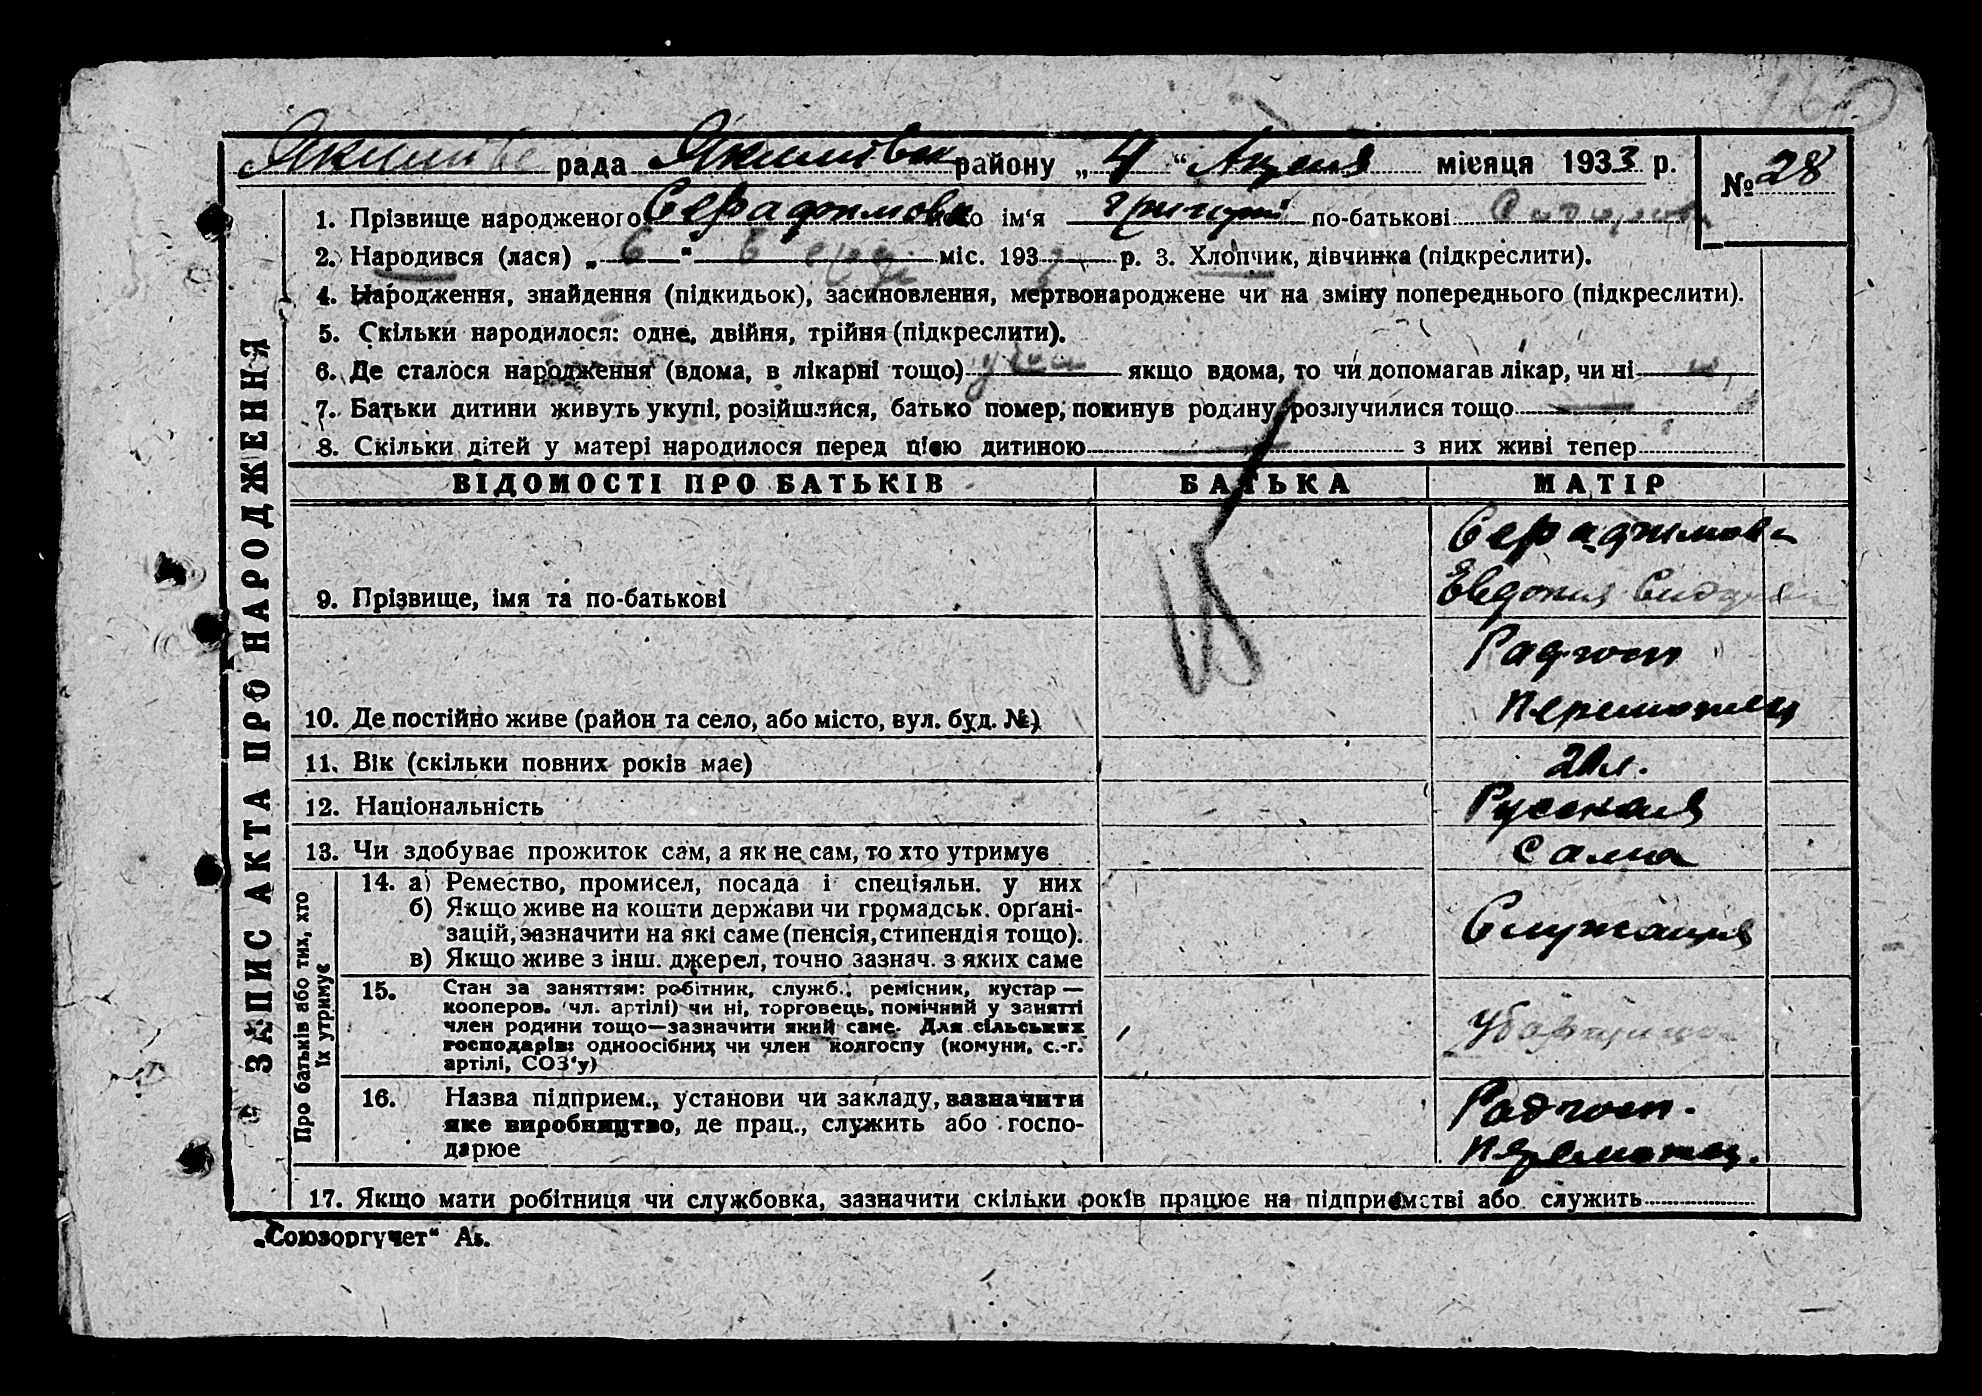 рада Якимівськ району „ 4 “ Апреля місяця 1933 р. № 28
1. Прізвище народженого Серафимова його ім‘я Григорий по-батькові
2. Народився (лася) „ 6 “ міс. 193 р. 3. Хлопчик, дівчинка (підкреслити).
4. Народження, знайдення (підкидьок), засиновлення, мертвонароджене чи на зміну попереднього (підкреслити).
5. Скільки народилося: одне, двійня, трійня (підкреслити).
6. Де сталося народження (вдома, в лікарні тощо) якщо вдома, то чи допомагав лікар, чи ні
7. Батьки дитини живуть укупі, розійшлися, батько помер, покинув родину розлучилися тощо
8. Скільки дітей у матері народилося перед цією дитиною з них живі тепер
ЗАПИС АКТА ПРО НАРОДЖЕННЯ
ВІДОМОСТІ ПРО БАТЬКІВ БАТЬКА МАТІР
Серафимова
Евдокия
9. Прізвище, імя та по-батькові
Радгосп
10. Де постійно живе (район та село, або місто, вул. буд. №)
11. Вік (скільки повних років має) 20 л.
12. Національність Русская
13. Чи здобуває прожиток сам, а як не сам, то хто утримує Сама
Про батьків або тих, хто
їх утримує
14. а) Ремество, промисел, посада і спеціяльн. у них
б) Якщо живе на кошти держави чи громадськ. органі-
зацій, зазначити на які саме (пенсія, стипендія тощо).
в) Якщо живе з інш. джерел, точно зазнач. з яких саме
Служащая
15. Стан за заняттям: робітник, служб., ремісник, кустар —
кооперов. (чл. артілі) чи ні, торговець, помічний у занятті
член родини тощо—зазначити який саме. Для сільських
господарів: одноосібних чи член колгоспу (комуни, с.-г.
артілі, СОЗ‘у)
Уборщица
16. Назва підприєм., установи чи закладу, зазначити
яке виробництво, де прац., служить або госпо-
дарює
Радгосп.
17. Якщо мати робітниця чи службовка, зазначити скільки років працює на підприємстві або служить
„Союзоргучет“